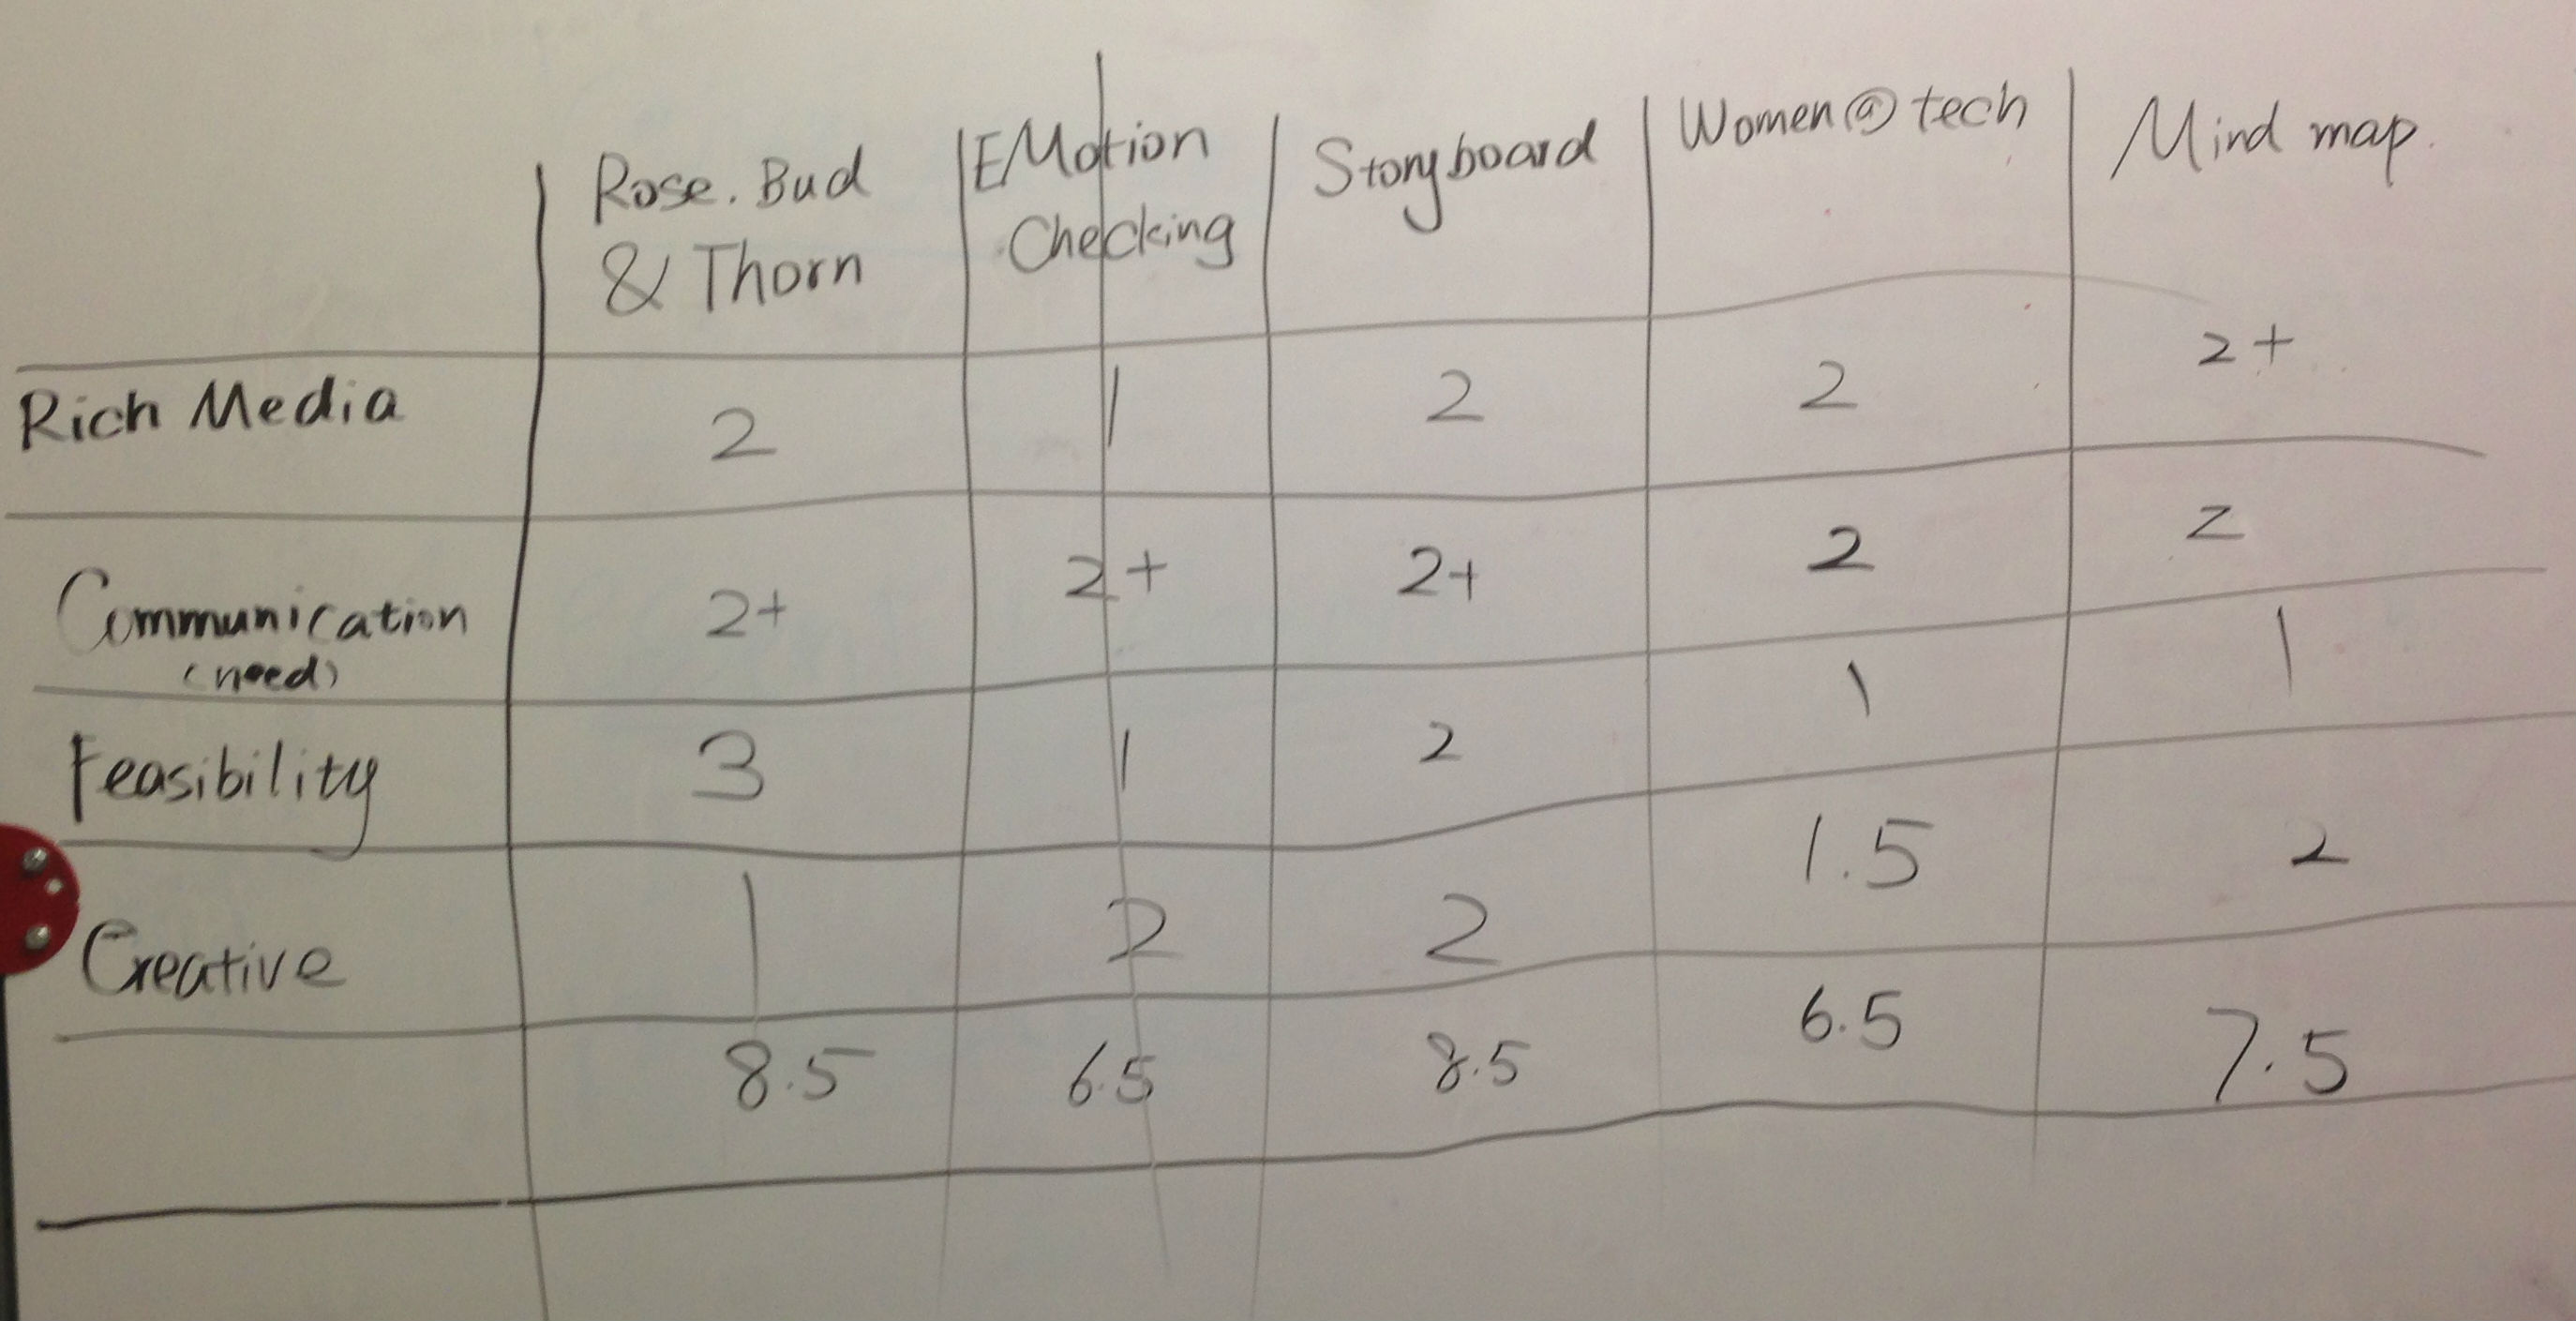 Rose. Bud & Thorn EMotion Checking Storyboard Women@tech Mind map.
Rich Media 2 1 2 2 2+
Communication (need) 2+ 2+ 2+ 2 2
Feasibility 3 1 2 1 1
Creative 1 2 2 1.5 2
8.5 6.5 8.5 6.5 7.5